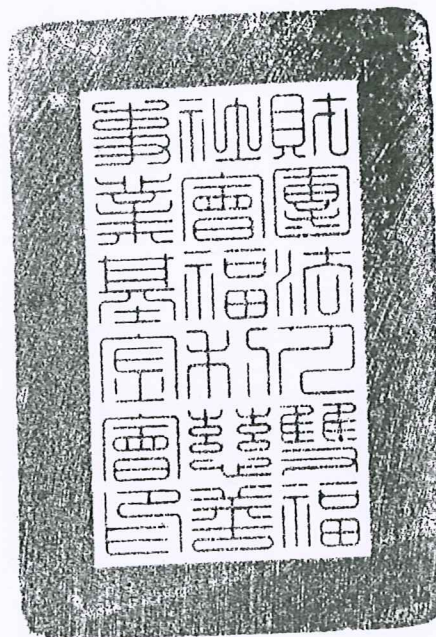 財團法人雙福
社會福利慈善
事業基金會印